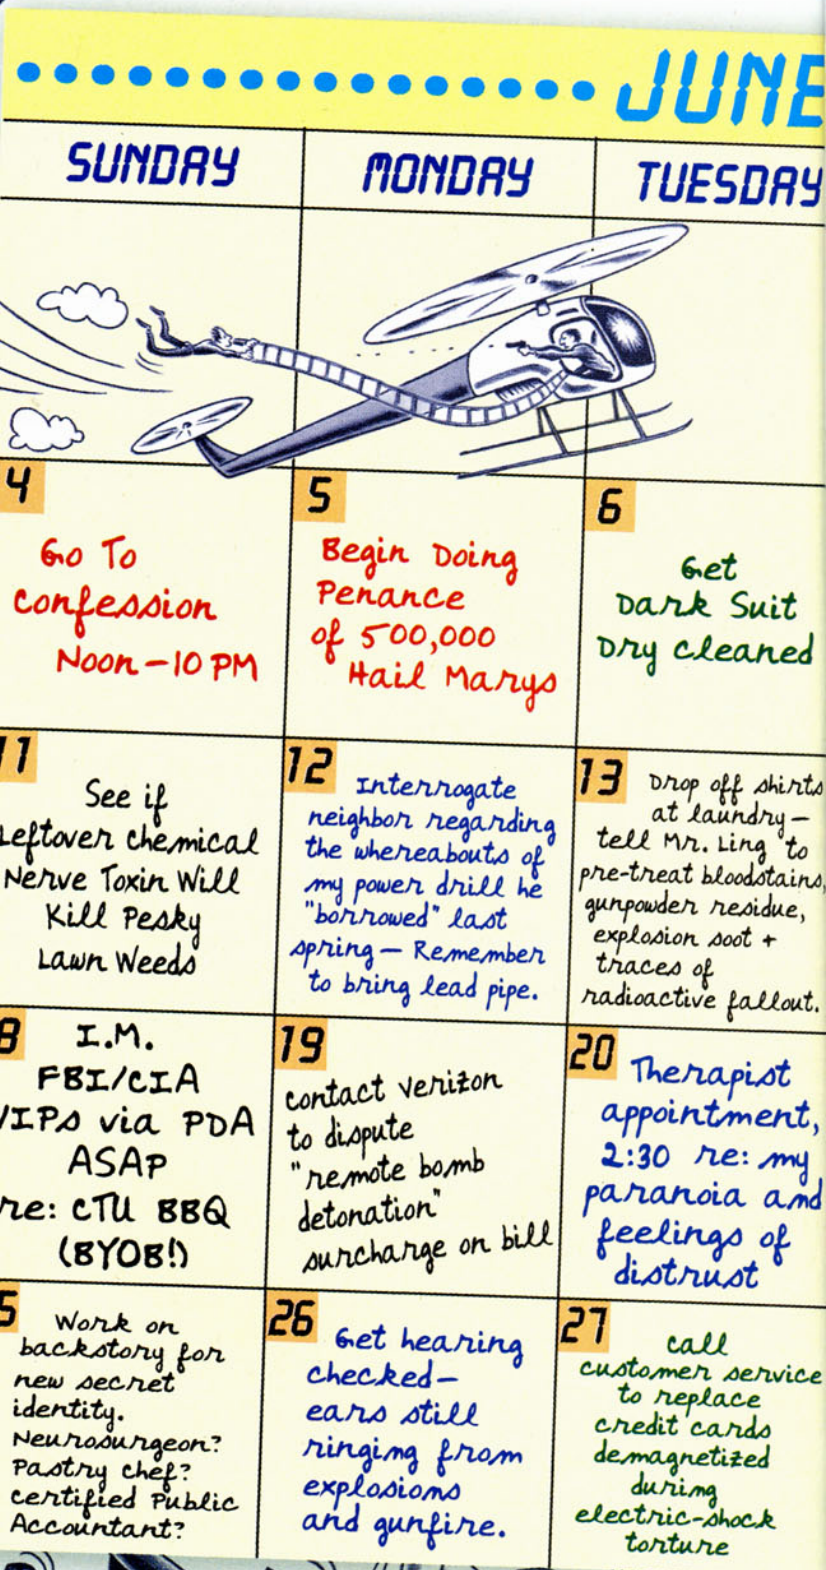 JUNE
SUNDAY
MONDAY
TUESDAY
4
Go To
Confession
Noon-10 PM
5
Begin Doing
Penance
of 500,000
Hail Marys
6
Get
Dark Suit
Dry Cleaned
11
See if
Leftover Chemical
Nerve Toxin Will
Kill Pesky
Lawn Weeds
12
Interrogate
neighbor regarding
the whereabouts of
my power drill he
"borrowed" last
spring— Remember
to bring lead pipe.
13
Drop off shirts
at laundry—
tell Mr. Ling to
pre-treat bloodstains,
gunpowder residue,
explosion soot +
traces of
radioactive fallout.
8
I.M.
FBI/CIA
VIPs via PDA
ASAP
re: CTU BBQ
(BYOB!)
19
Contact Verizon
to dispute
"remote bomb
detonation"
surcharge on bill
20
Therapist
appointment,
2:30 re: my
paranoia and
feelings of
distrust
5
Work on
backstory for
new secret
identity.
Neurosurgeon?
Pastry Chef?
Certified Public
Accountant?
26
Get hearing
checked—
ears still
ringing from
explosions
and gunfire.
27
Call
customer service
to replace
credit cards
demagnetized
during
electric-shock
torture